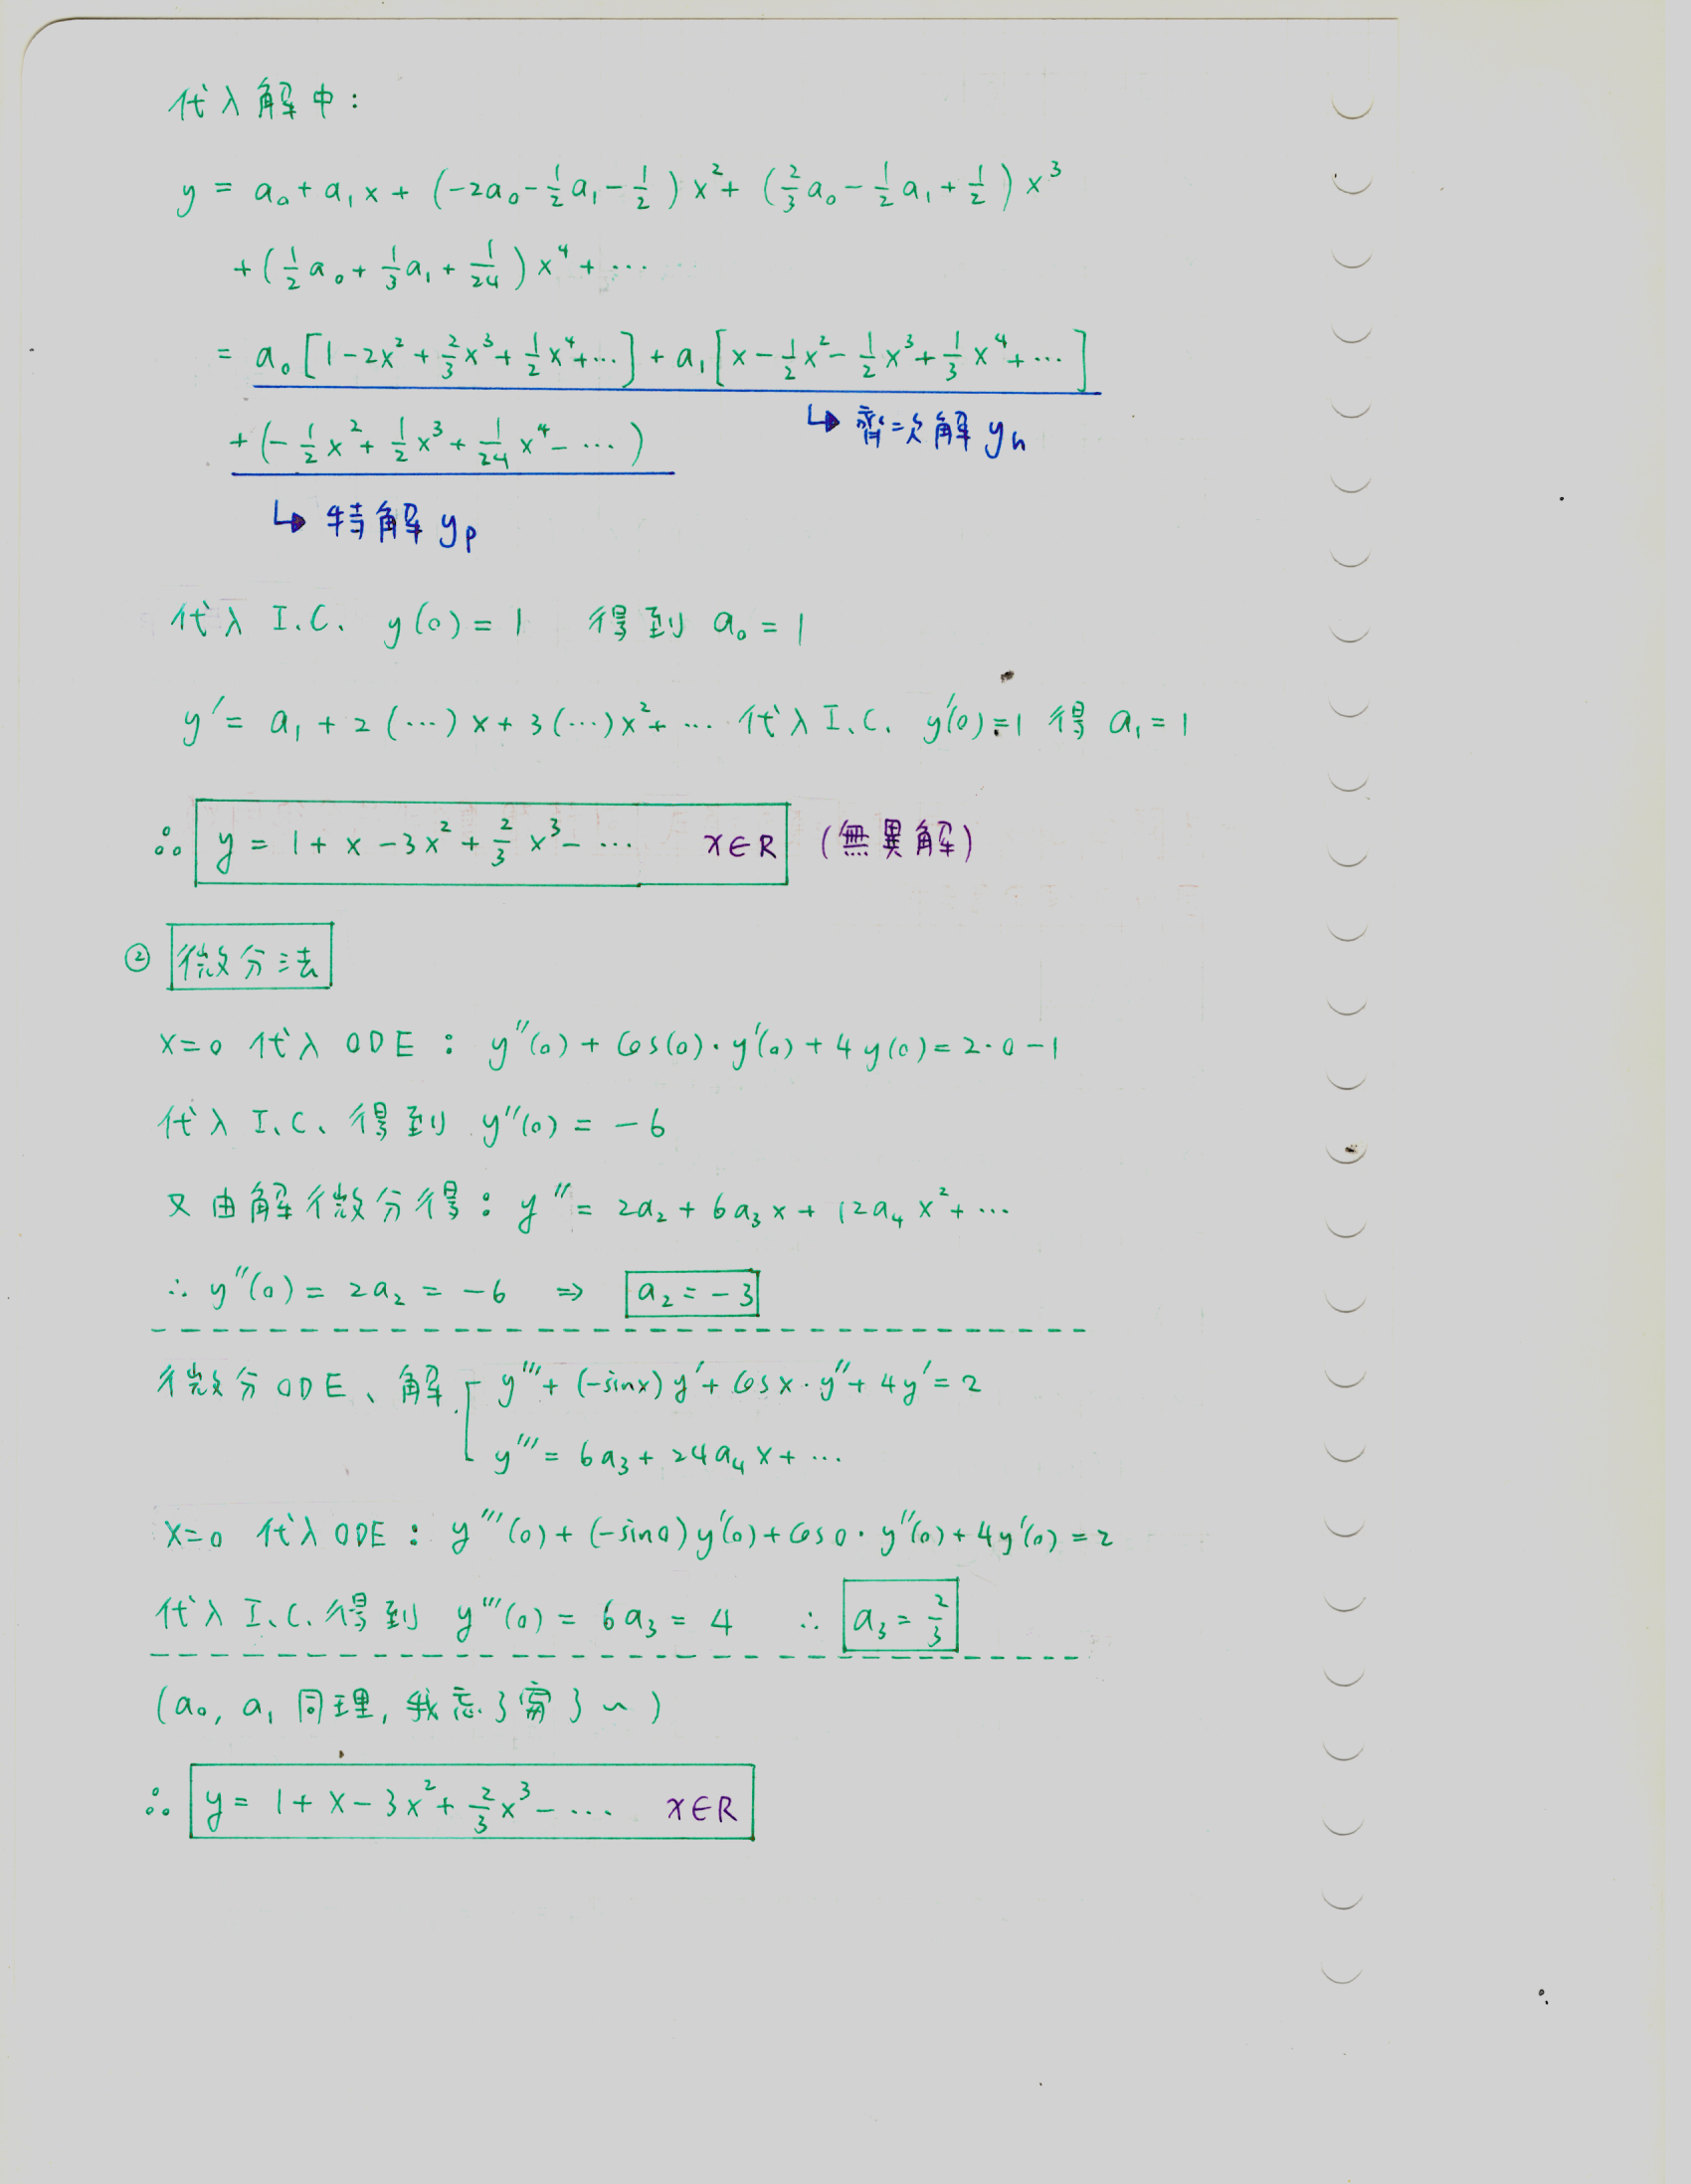 代入解中:
y = a₀ + a₁x + (-2a₀ - ½a₁ - ½)x² + (⅔a₀ - ½a₁ + ½)x³
+ (½a₀ + ⅓a₁ + 1/24)x⁴ + ⋯
= a₀[1 - 2x² + ⅔x³ + ½x⁴ + ⋯] + a₁[x - ½x² - ½x³ + ⅓x⁴ + ⋯]
↳ 齊次解 yh
+ (-½x² + ½x³ + 1/24 x⁴ - ⋯)
↳ 特解 yp
代入 I.C. y(0) = 1 得到 a₀ = 1
y′ = a₁ + 2(⋯)x + 3(⋯)x² + ⋯ 代入 I.C. y′(0) = 1 得 a₁ = 1
∴ y = 1 + x - 3x² + ⅔x³ - ⋯ x∈R (無異解)
② 微分法
x=0 代入 ODE : y″(0) + cos(0)·y′(0) + 4y(0) = 2·0 - 1
代入 I.C. 得到 y″(0) = -6
又由解微分得: y″ = 2a₂ + 6a₃x + 12a₄x² + ⋯
∴ y″(0) = 2a₂ = -6 ⇒ a₂ = -3
微分 ODE、解 y‴ + (-sinx)y′ + cosx·y″ + 4y′ = 2
y‴ = 6a₃ + 24a₄x + ⋯
x=0 代入 ODE : y‴(0) + (-sin0)y′(0) + cos0·y″(0) + 4y′(0) = 2
代入 I.C. 得到 y‴(0) = 6a₃ = 4 ∴ a₃ = ⅔
(a₀, a₁ 同理, 我忘了寫了~)
∴ y = 1 + x - 3x² + ⅔x³ - ⋯ x∈R